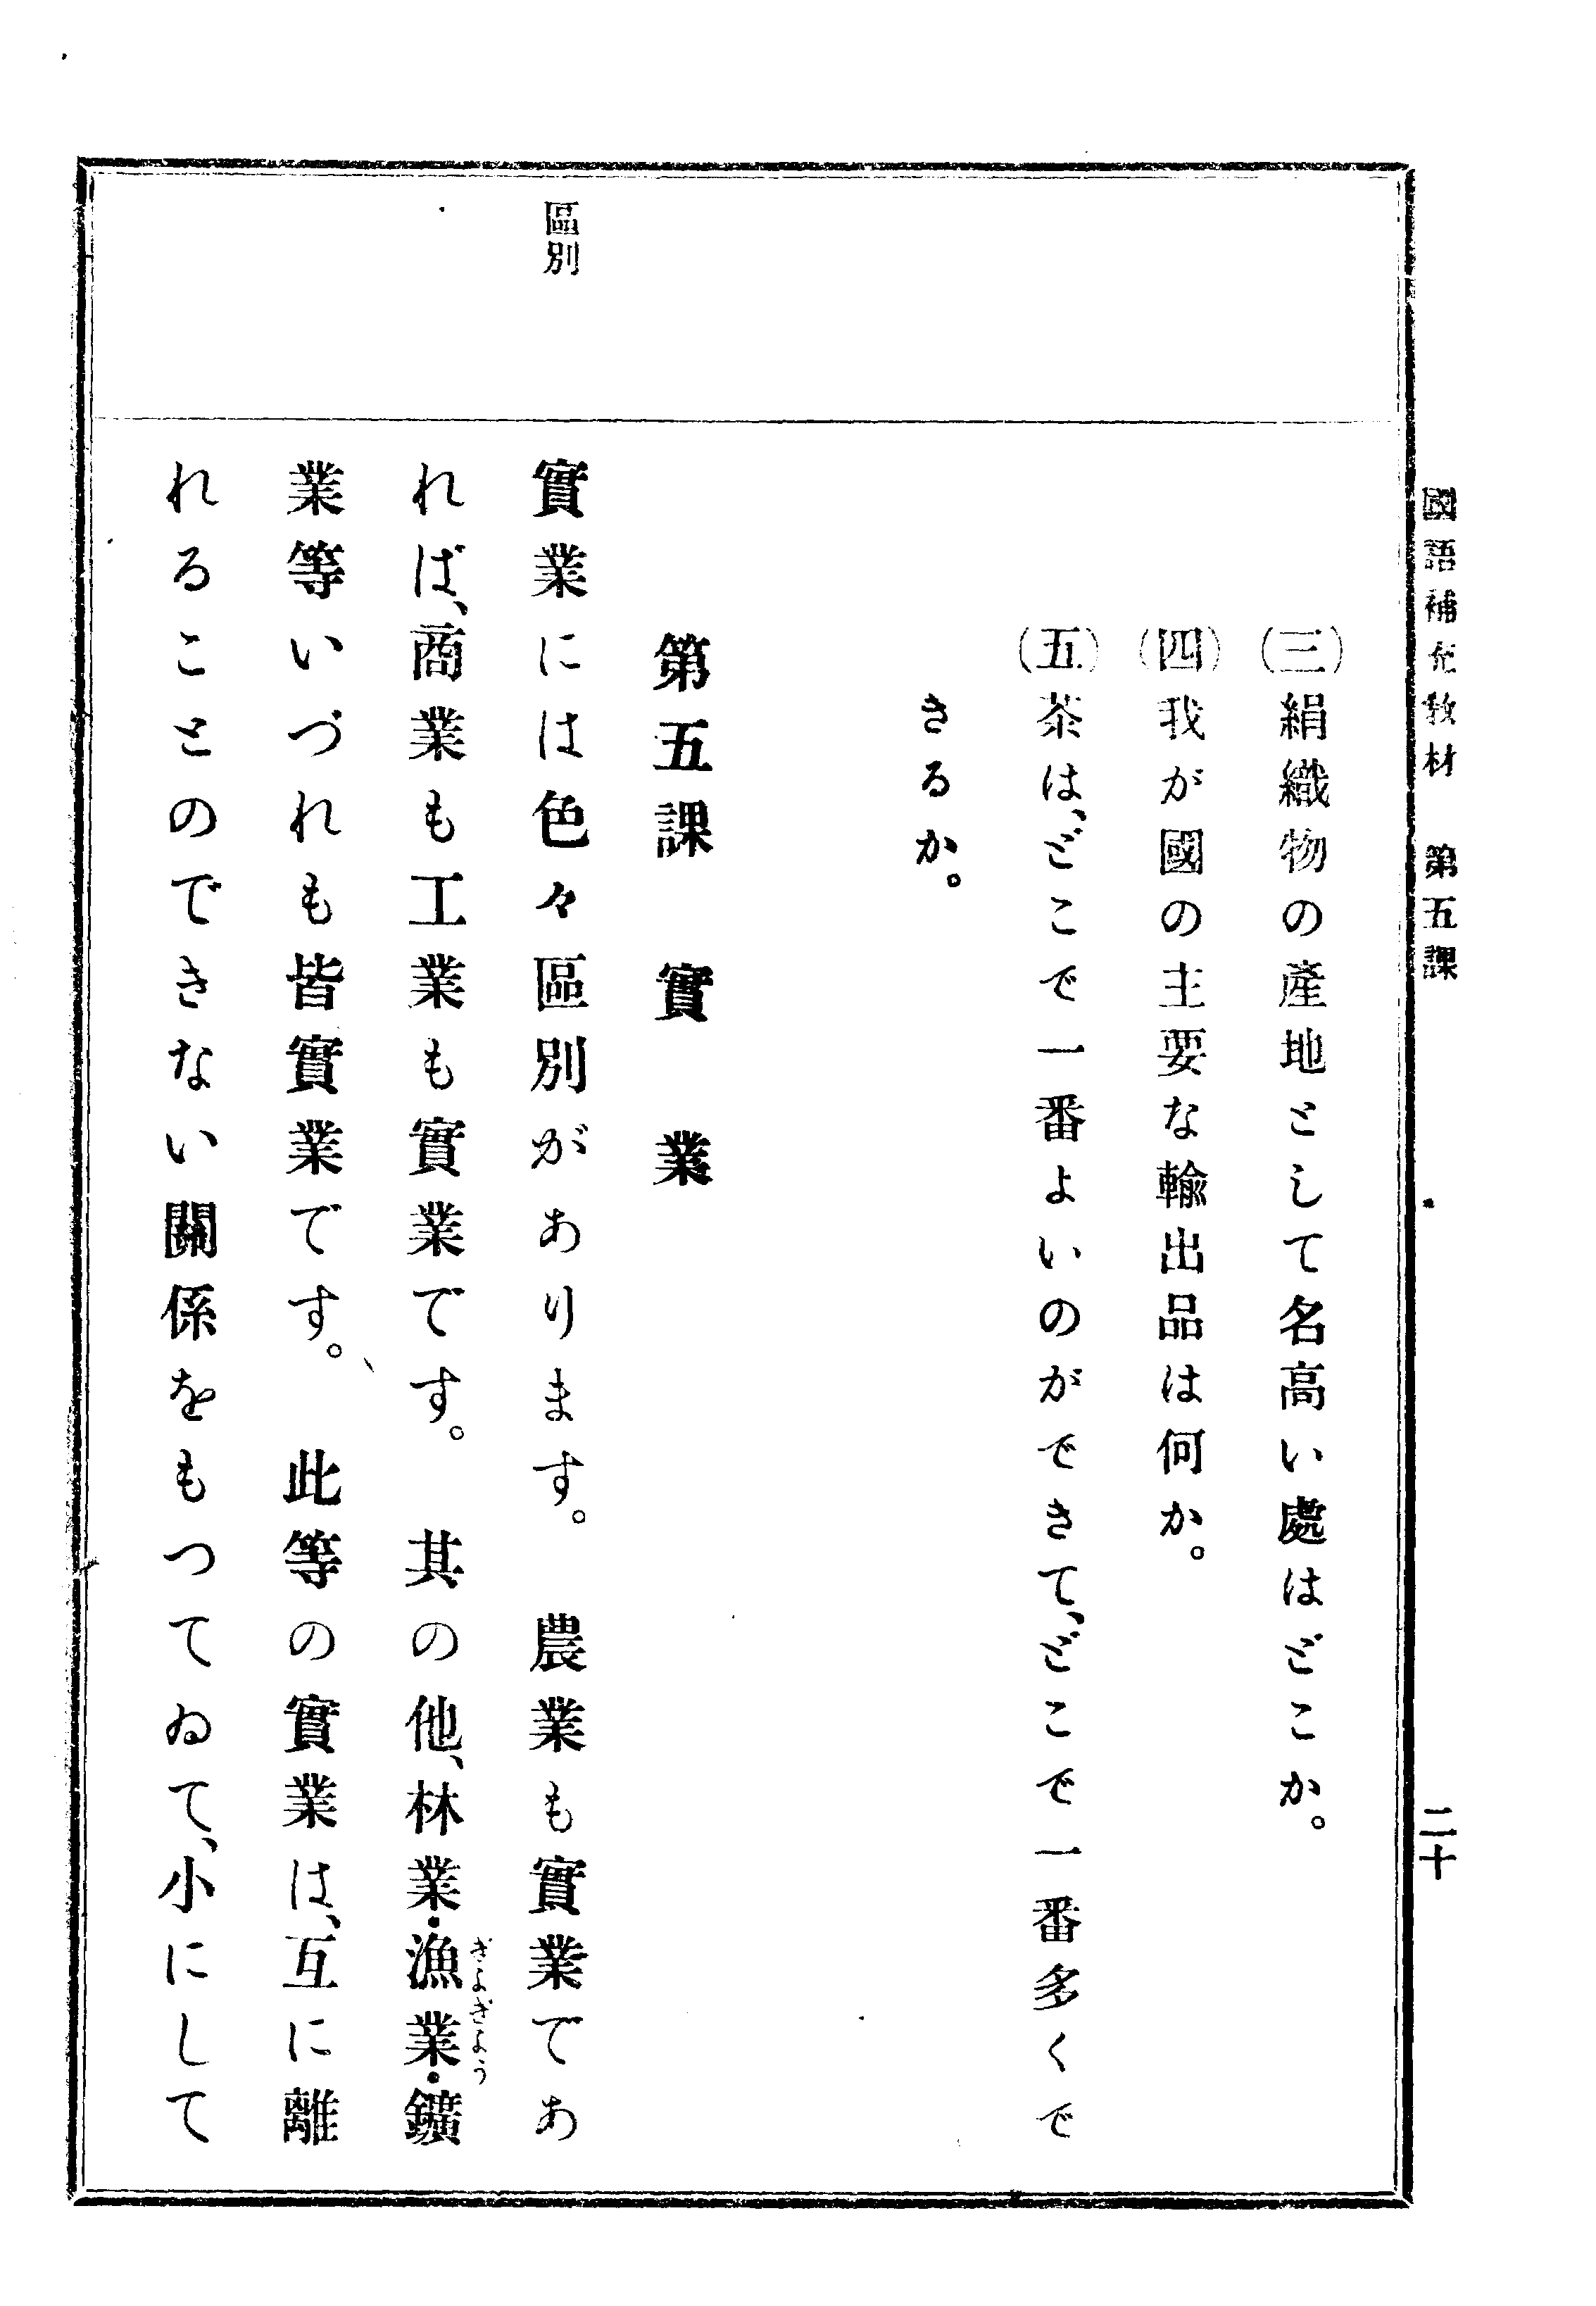 國語補充教材　第五課　二十
(三)絹織物の產地として名高い處はどこか。
(四)我が國の主要な輸出品は何か。
(五)茶は、どこで一番よいのができて、どこで一番多くで
きるか。
第五課　實業
區別
實業には色々區別があります。　農業も實業であ
れば、商業も工業も實業です。　其の他、林業・漁業・鑛
ぎよぎよう
業等いづれも皆實業です。　此等の實業は、互に離
れることのできない關係をもつてゐて、小にして